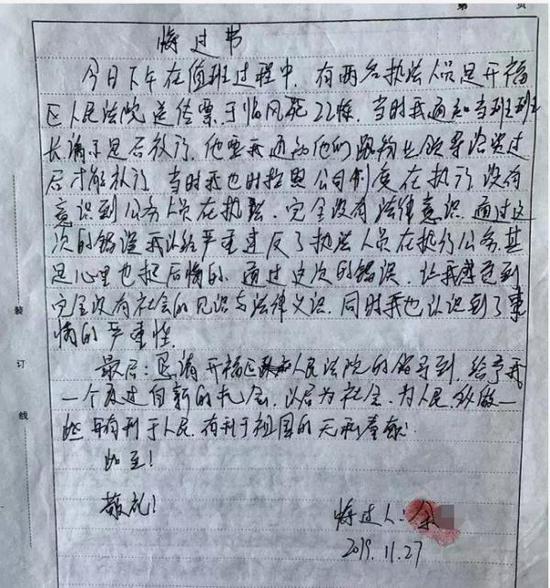 第 页
悔过书
今日下午在值班过程中，有两名执法人员是开福
区人民法院送传票于临风苑22栋，当时我通知当班班
长请示是否放行，他要我通知他们跟物业领导洽谈过
后才能放行，当时我也时按照公司制度在执行，没有
意识到公务人员在执法，完全没有法律意识，通过这
次的错误我认经严重违反了执法人员在执行公务，其
是心里也挺后悔的，通过史次的错误，让我感觉到
完全没有社会的见识与法律义识，同时我也认识到了事
情的严重性。
最后：恳请开福区人民法院的领导到，给予我
一个改过自新的机会，以后为社会，为人民，多做一
些有利于人民，有利于祖国的无私奉献！
如至！
敬礼！
悔过人：余
2019.11.27
装
订
线